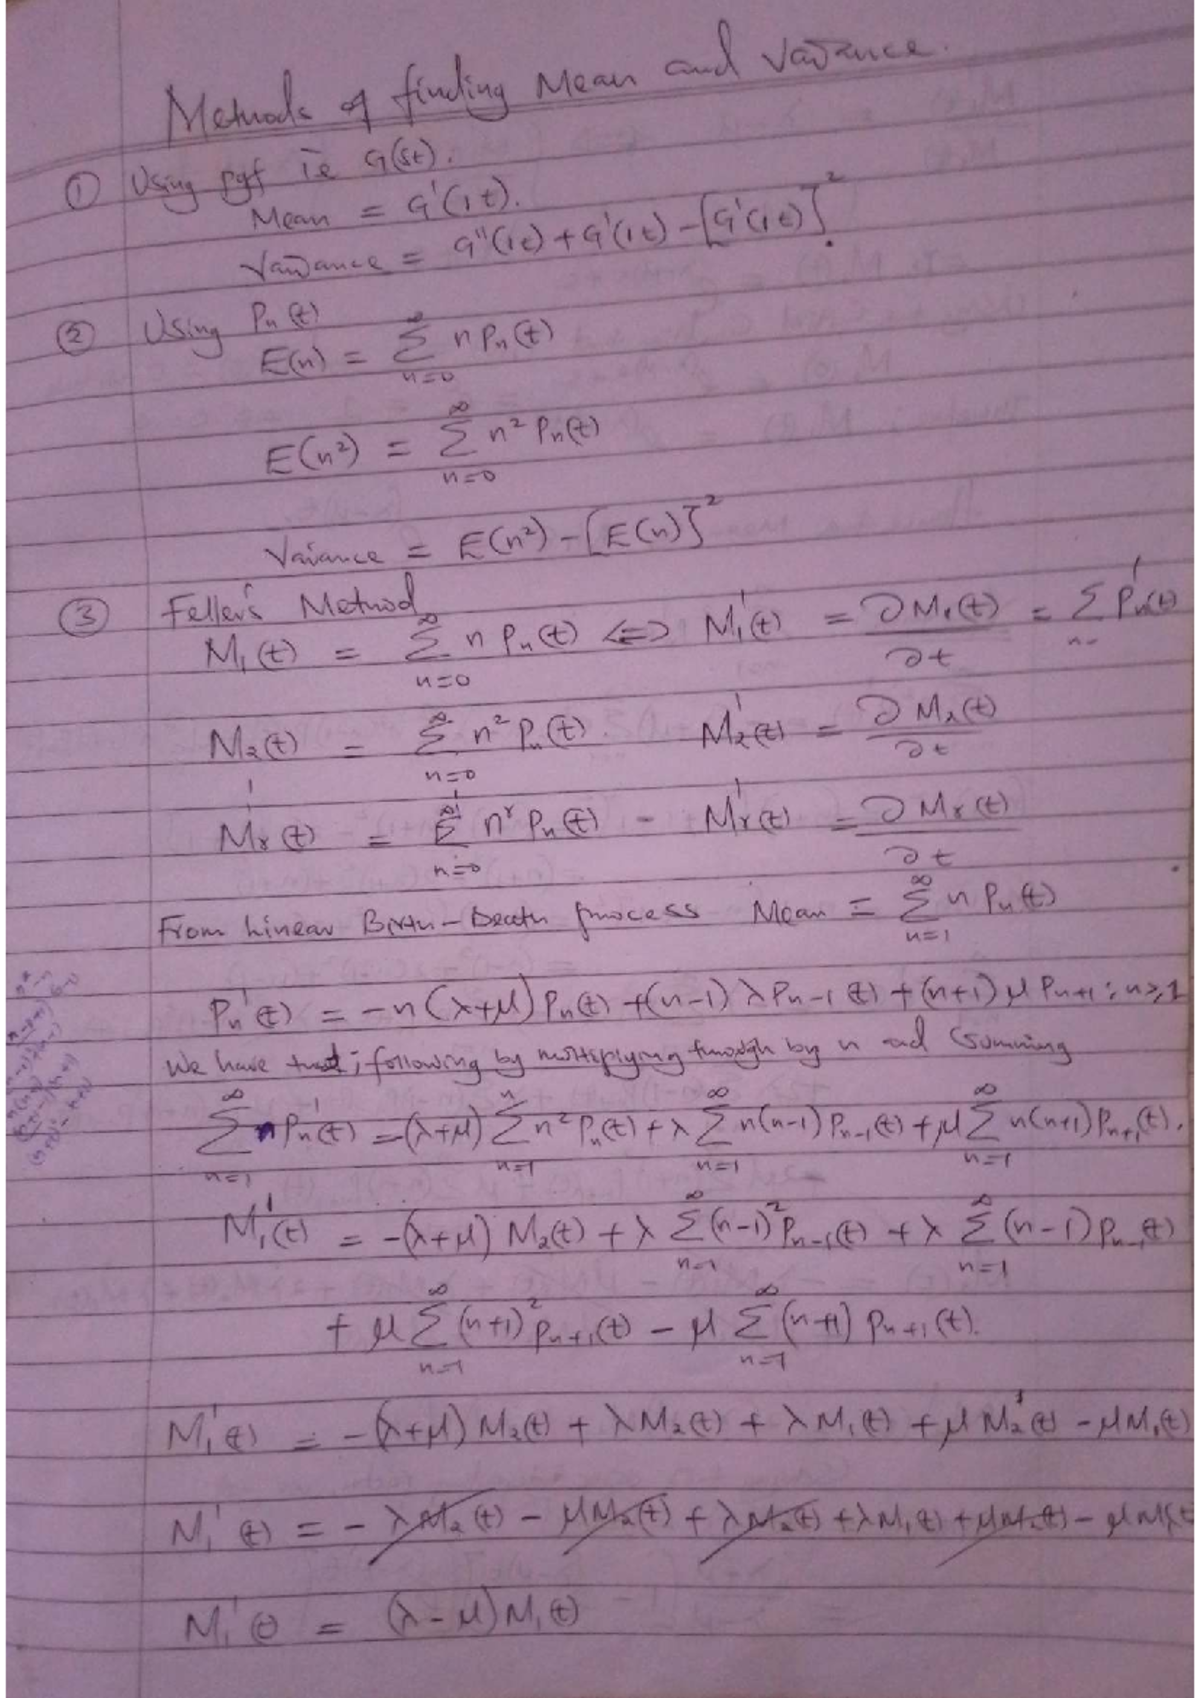 Methods of finding Mean and Variance.
① Using pgf ie G(st).
Mean = G'(1t).
Variance = G''(1t) + G'(1t) - [G'(1t)]²
② Using Pn(t)
E(n) = ∞ Σ n=0 n Pn(t)
E(n²) = ∞ Σ n=0 n² Pn(t)
Variance = E(n²) - [E(n)]²
③ Feller's Method
M₁(t) = ∞ Σ n=0 n Pn(t) <=> M₁'(t) = ∂M₁(t)/∂t = Σ n= Pn'(t)
M₂(t) = ∞ Σ n=0 n² Pn(t). M₂'(t) = ∂M₂(t)/∂t
Mr(t) = ∞ Σ n=0 nʳ Pn(t) - Mr'(t) = ∂Mr(t)/∂t
From Linear Birth-Death process Mean = ∞ Σ n=1 n Pn(t)
Pn'(t) = -n(λ+μ)Pn(t) + (n-1)λPn-1(t) + (n+1)μPn+1 ; n≥1
We have that; following by multiplying through by n and summing
∞ Σ n=1 n Pn'(t) = -(λ+μ) n Σ n=1 n² Pn(t) + λ ∞ Σ n=1 n(n-1)Pn-1(t) + μ ∞ Σ n=1 n(n+1)Pn+1(t).
M₁'(t) = -(λ+μ) M₂(t) + λ ∞ Σ n=1 (n-1)² Pn-1(t) + λ ∞ Σ n=1 (n-1) Pn-1(t)
+ μ ∞ Σ n=1 (n+1)² Pn+1(t) - μ ∞ Σ n=1 (n+1) Pn+1(t).
M₁'(t) = -(λ+μ) M₂(t) + λM₂(t) + λM₁(t) + μM₂'(t) - μM₁(t)
M₁'(t) = -λM₂(t) - μM₂(t) + λM₂(t) + λM₁(t) + μM₂(t) - μM₁(t
M₁'(t) = (λ-μ)M₁(t)